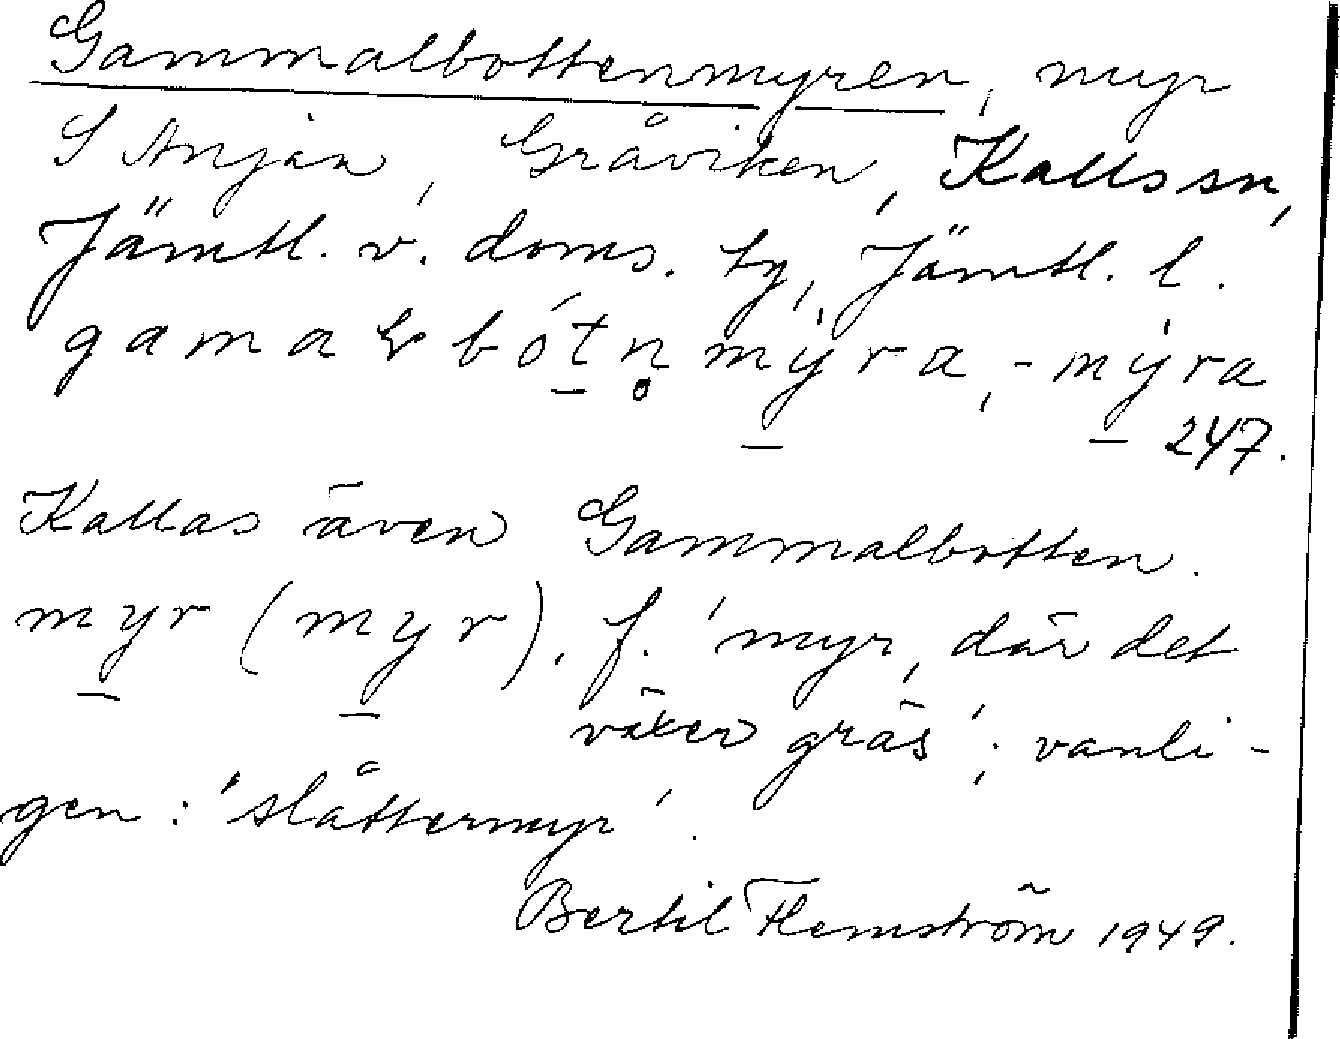 Gammalbottenmyren, myr
S Anjan, Gråviken, Kalls sn,
Jämtl. v. doms. tg, Jämtl. l.
gamaɫbótn̥mỳra, -mýra
247.
Kallas även Gammalbotten.
myr (myr). f. 'myr, där det
växer gräs'; vanli-
gen: 'slåttermyr'.
Bertil Flemström 1949.